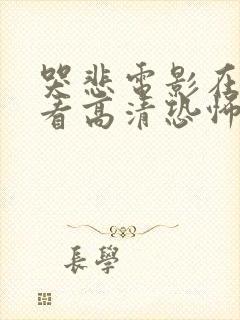 哭悲電影在
看高清恐怖
長學